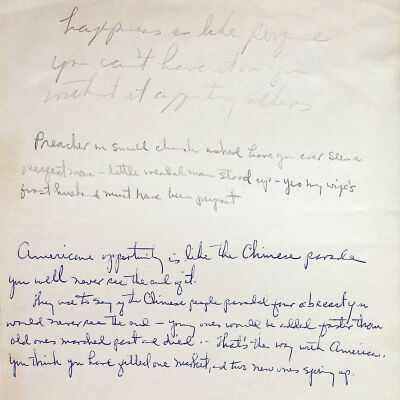 happiness is like perfume
you can't have it on you
without it affecting others
Preacher in small church asked have you ever seen a
perfect man - little man stood up - yes my wife's
first husband must have been perfect
Americans opportunity is like the Chinese parade
you will never see the end of it.
They use to say if the Chinese people paraded four abreast you
would never see the end - young ones would be added faster than
old ones marched past and died. - That's the way with America.
You think you have filled one market, and two new ones spring up.